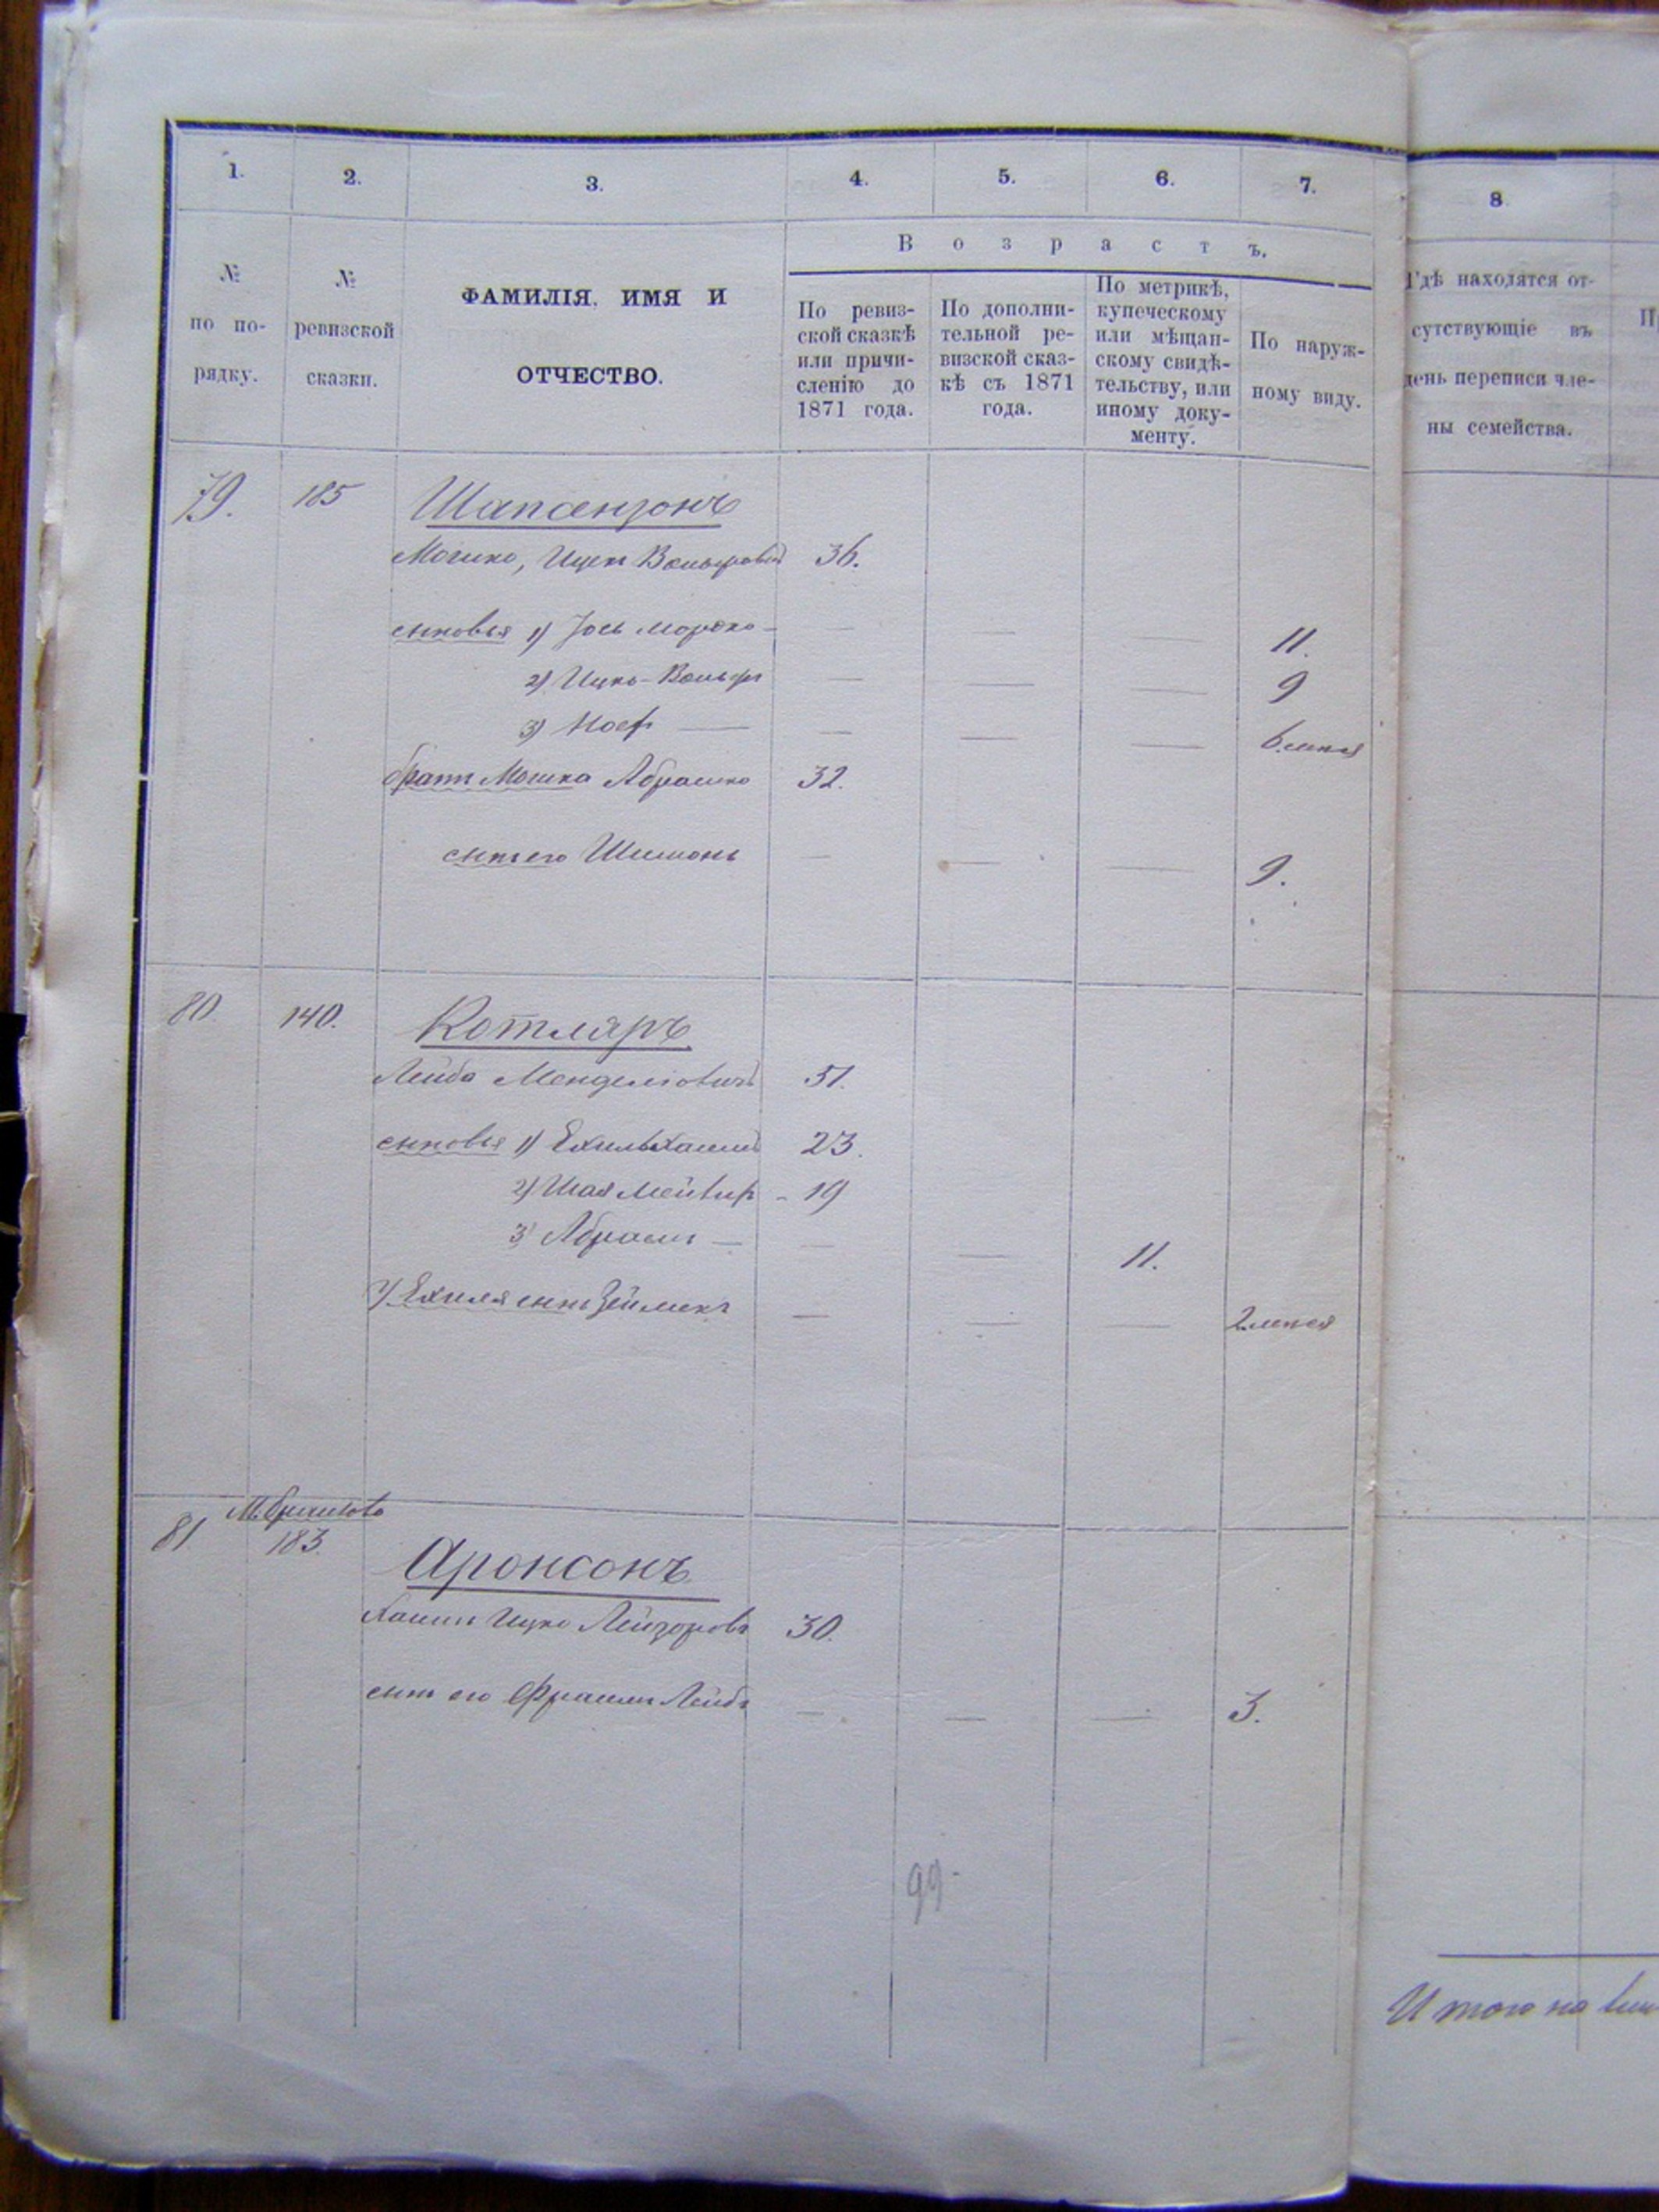 1. 2. 3. 4. 5. 6. 7. 8.
№ по по-рядку.
№ ревизской сказки.
ФАМИЛІЯ, ИМЯ И
ОТЧЕСТВО.
В о з р а с т ъ.
По ревиз-
ской сказкѣ
или причи-
сленію до
1871 года.
По дополни-
тельной ре-
визской сказ-
кѣ съ 1871
года.
По метрикѣ,
купеческому
или мѣщан-
скому свидѣ-
тельству, или
иному доку-
менту.
По наруж-
ному виду.
Гдѣ находятся от-
сутствующіе въ
день переписи чле-
ны семейства.
79. 185 Шапсензонъ
Мошко, Ицек Вольфовъ 36.
сыновья 1) Іось Мордко — — — — 11.
2) Ицко-Вольф — — — 9
3) Носф — — — — 6 мися
братъ Мошка Абрашко 32.
сынъ его Шимонъ — — — 9.
80. 140. Котляръ
Лейба Менделіовичъ 51.
сыновья 1) Ехиль Хаимъ 23.
2) Шая Мейвир - 19
3) Абрамъ — — — 11.
1) Ехиля сынъ Зейликъ — — — 2 мися
81 183. Аронсонъ
Хаимъ Ицко Лейзоровъ 30.
сынъ его Фраимъ Лейбъ — — — 3.
99-
Итого на